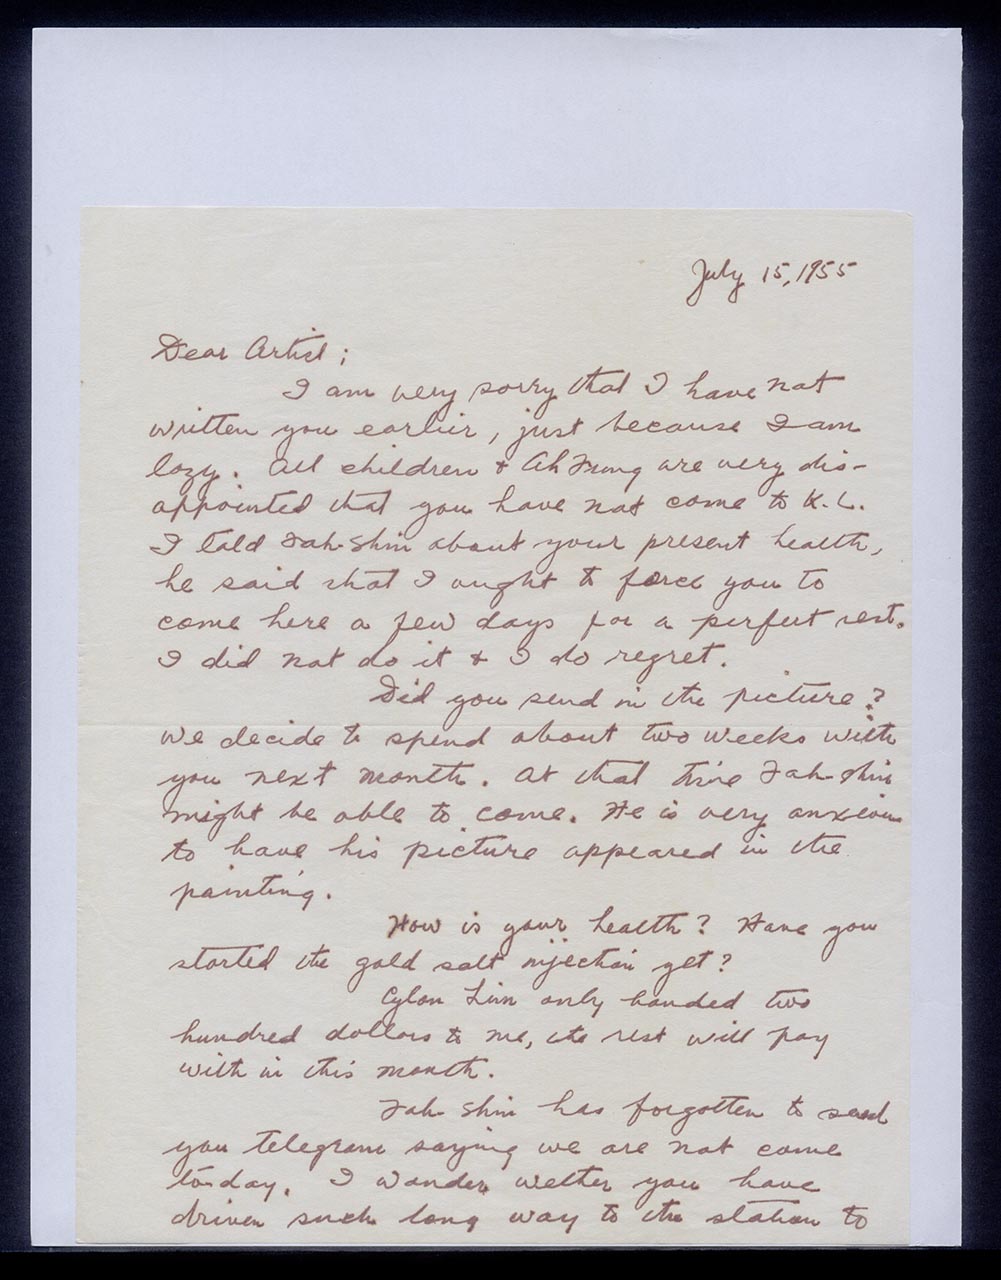 July 15, 1955
Dear Artist;
I am very sorry that I have not
written you earlier, just because I am
lazy. All children & Ah Fung are very dis-
appointed that you have not come to K.L.
I told Fah-Shin about your present health,
he said that I ought to force you to
come here a few days for a perfect rest.
I did not do it & I do regret.
Did you send in the picture?
We decide to spend about two weeks with
you next month. At that time Fah-Shin
might be able to come. He is very anxious
to have his picture appeared in the
painting.
How is your health? Have you
started the gold salt injection yet?
Cylon Lim only handed two
hundred dollars to me, the rest will pay
with in this month.
Fah-Shin has forgotten to send
you telegram saying we are not come
to-day. I wonder wether you have
driven such long way to the station to